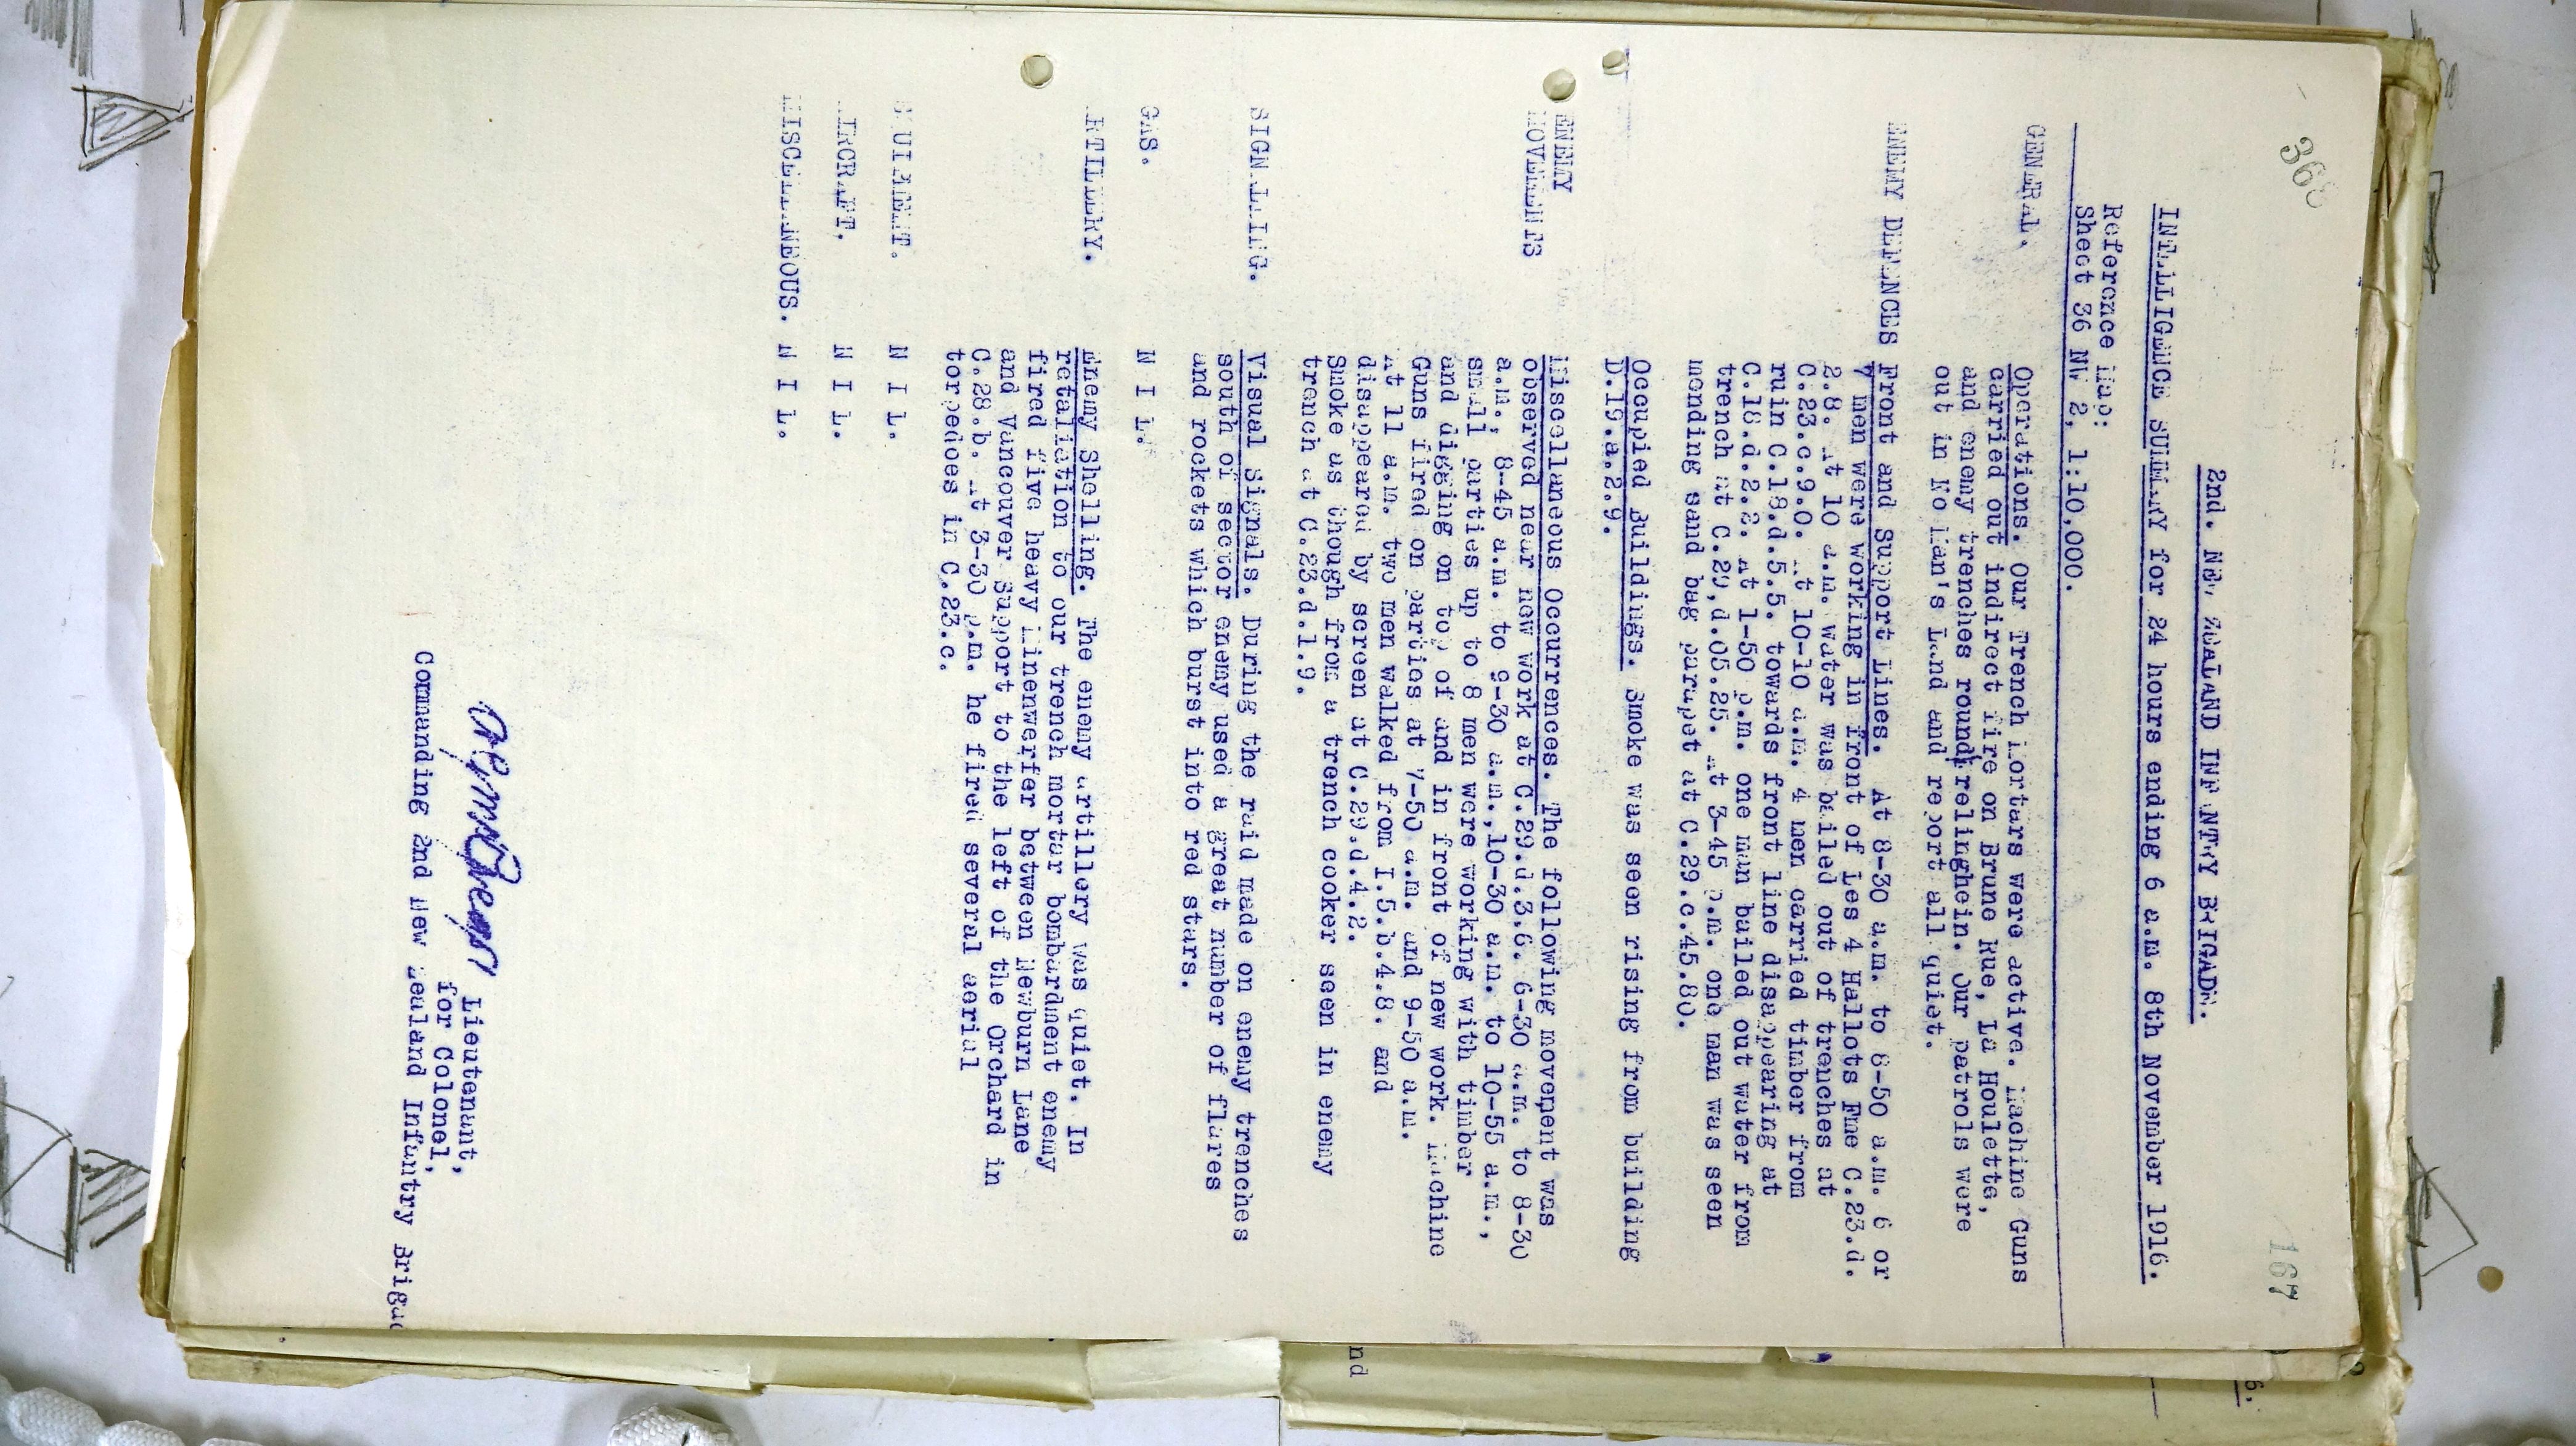 167
2nd. NEW ZEALAND INFANTRY BRIGADE.
INTELLIGENCE SUMMARY for 24 hours ending 6 a.m. 8th November 1916.
Reference Map:
Sheet 36 NW 2, 1:10,000.
GENERAL. Operations. Our Trench Mortars were active. Machine Guns
carried out indirect fire on Brune Rue, La Houlette,
and enemy trenches round Frelinghein. Our patrols were
out in No Man's Land and report all quiet.
ENEMY DEFENCES Front and Support Lines. At 8-30 a.m. to 8-50 a.m. 6 or
7 men were working in front of Les 4 Hallots Fme C.23.d.
2.8. At 10 a.m. water was bailed out of trenches at
C.23.c.9.0. At 10-10 a.m. 4 men carried timber from
ruin C.18.d.5.5. towards front line disappearing at
C.18.d.2.2. At 1-50 p.m. one man bailed out water from
trench at C.29.d.05.25. At 3-45 p.m. one man was seen
mending sand bag parapet at C.29.c.45.80.
Occupied Buildings. Smoke was seen rising from building
D.19.a.2.9.
ENEMY
MOVEMENTS Miscellaneous Occurrences. The following movement was
observed near new work at C.29.d.3.6. 6-30 a.m. to 8-30
a.m., 8-45 a.m. to 9-30 a.m.,10-30 a.m. to 10-55 a.m.,
small parties up to 8 men were working with timber
and digging on top of and in front of new work. Machine
Guns fired on parties at 7-50 a.m. and 9-50 a.m.
At 11 a.m. two men walked from I.5.b.4.8. and
disappeared by screen at C.29.d.4.2.
Smoke as though from a trench cooker seen in enemy
trench at C.23.d.1.9.
SIGNALLING. Visual Signals. During the raid made on enemy trenches
south of sector enemy used a great number of flares
and rockets which burst into red stars.
GAS. N I L.
ARTILLERY. Enemy Shelling. The enemy artillery was quiet. In
retaliation to our trench mortar bombardment enemy
fired five heavy Minenwerfer between Newburn Lane
and Vancouver Support to the left of the Orchard in
C.28.b. At 3-30 p.m. he fired several aerial
torpedoes in C.23.c.
EQUIPMENT. N I L.
AIRCRAFT. N I L.
MISCELLANEOUS. N I L.
Lieutenant,
for Colonel,
Commanding 2nd New Zealand Infantry Brigad
nd
6.